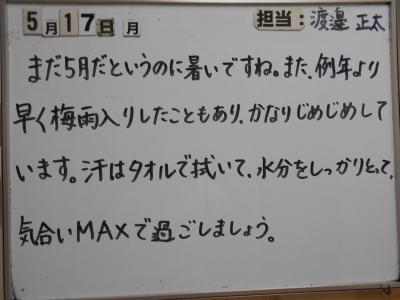 5月17日 月 担当:渡邉 正太
まだ5月だというのに暑いですね。また、例年より
早く梅雨入りしたこともあり、かなりじめじめして
います。汗はタオルで拭いて、水分をしっかりとって、
気合いMAXで過ごしましょう。